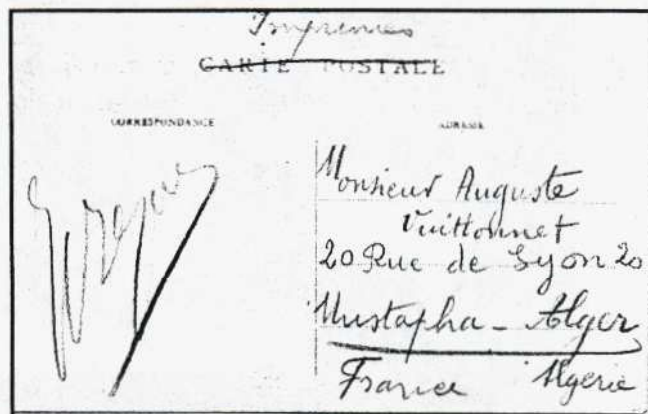 Imprimés
CARTE POSTALE
CORRESPONDANCE
ADRESSE
Monsieur Auguste
Vuittonnet
20 Rue de Lyon 20
Mustapha - Alger
France Algerie